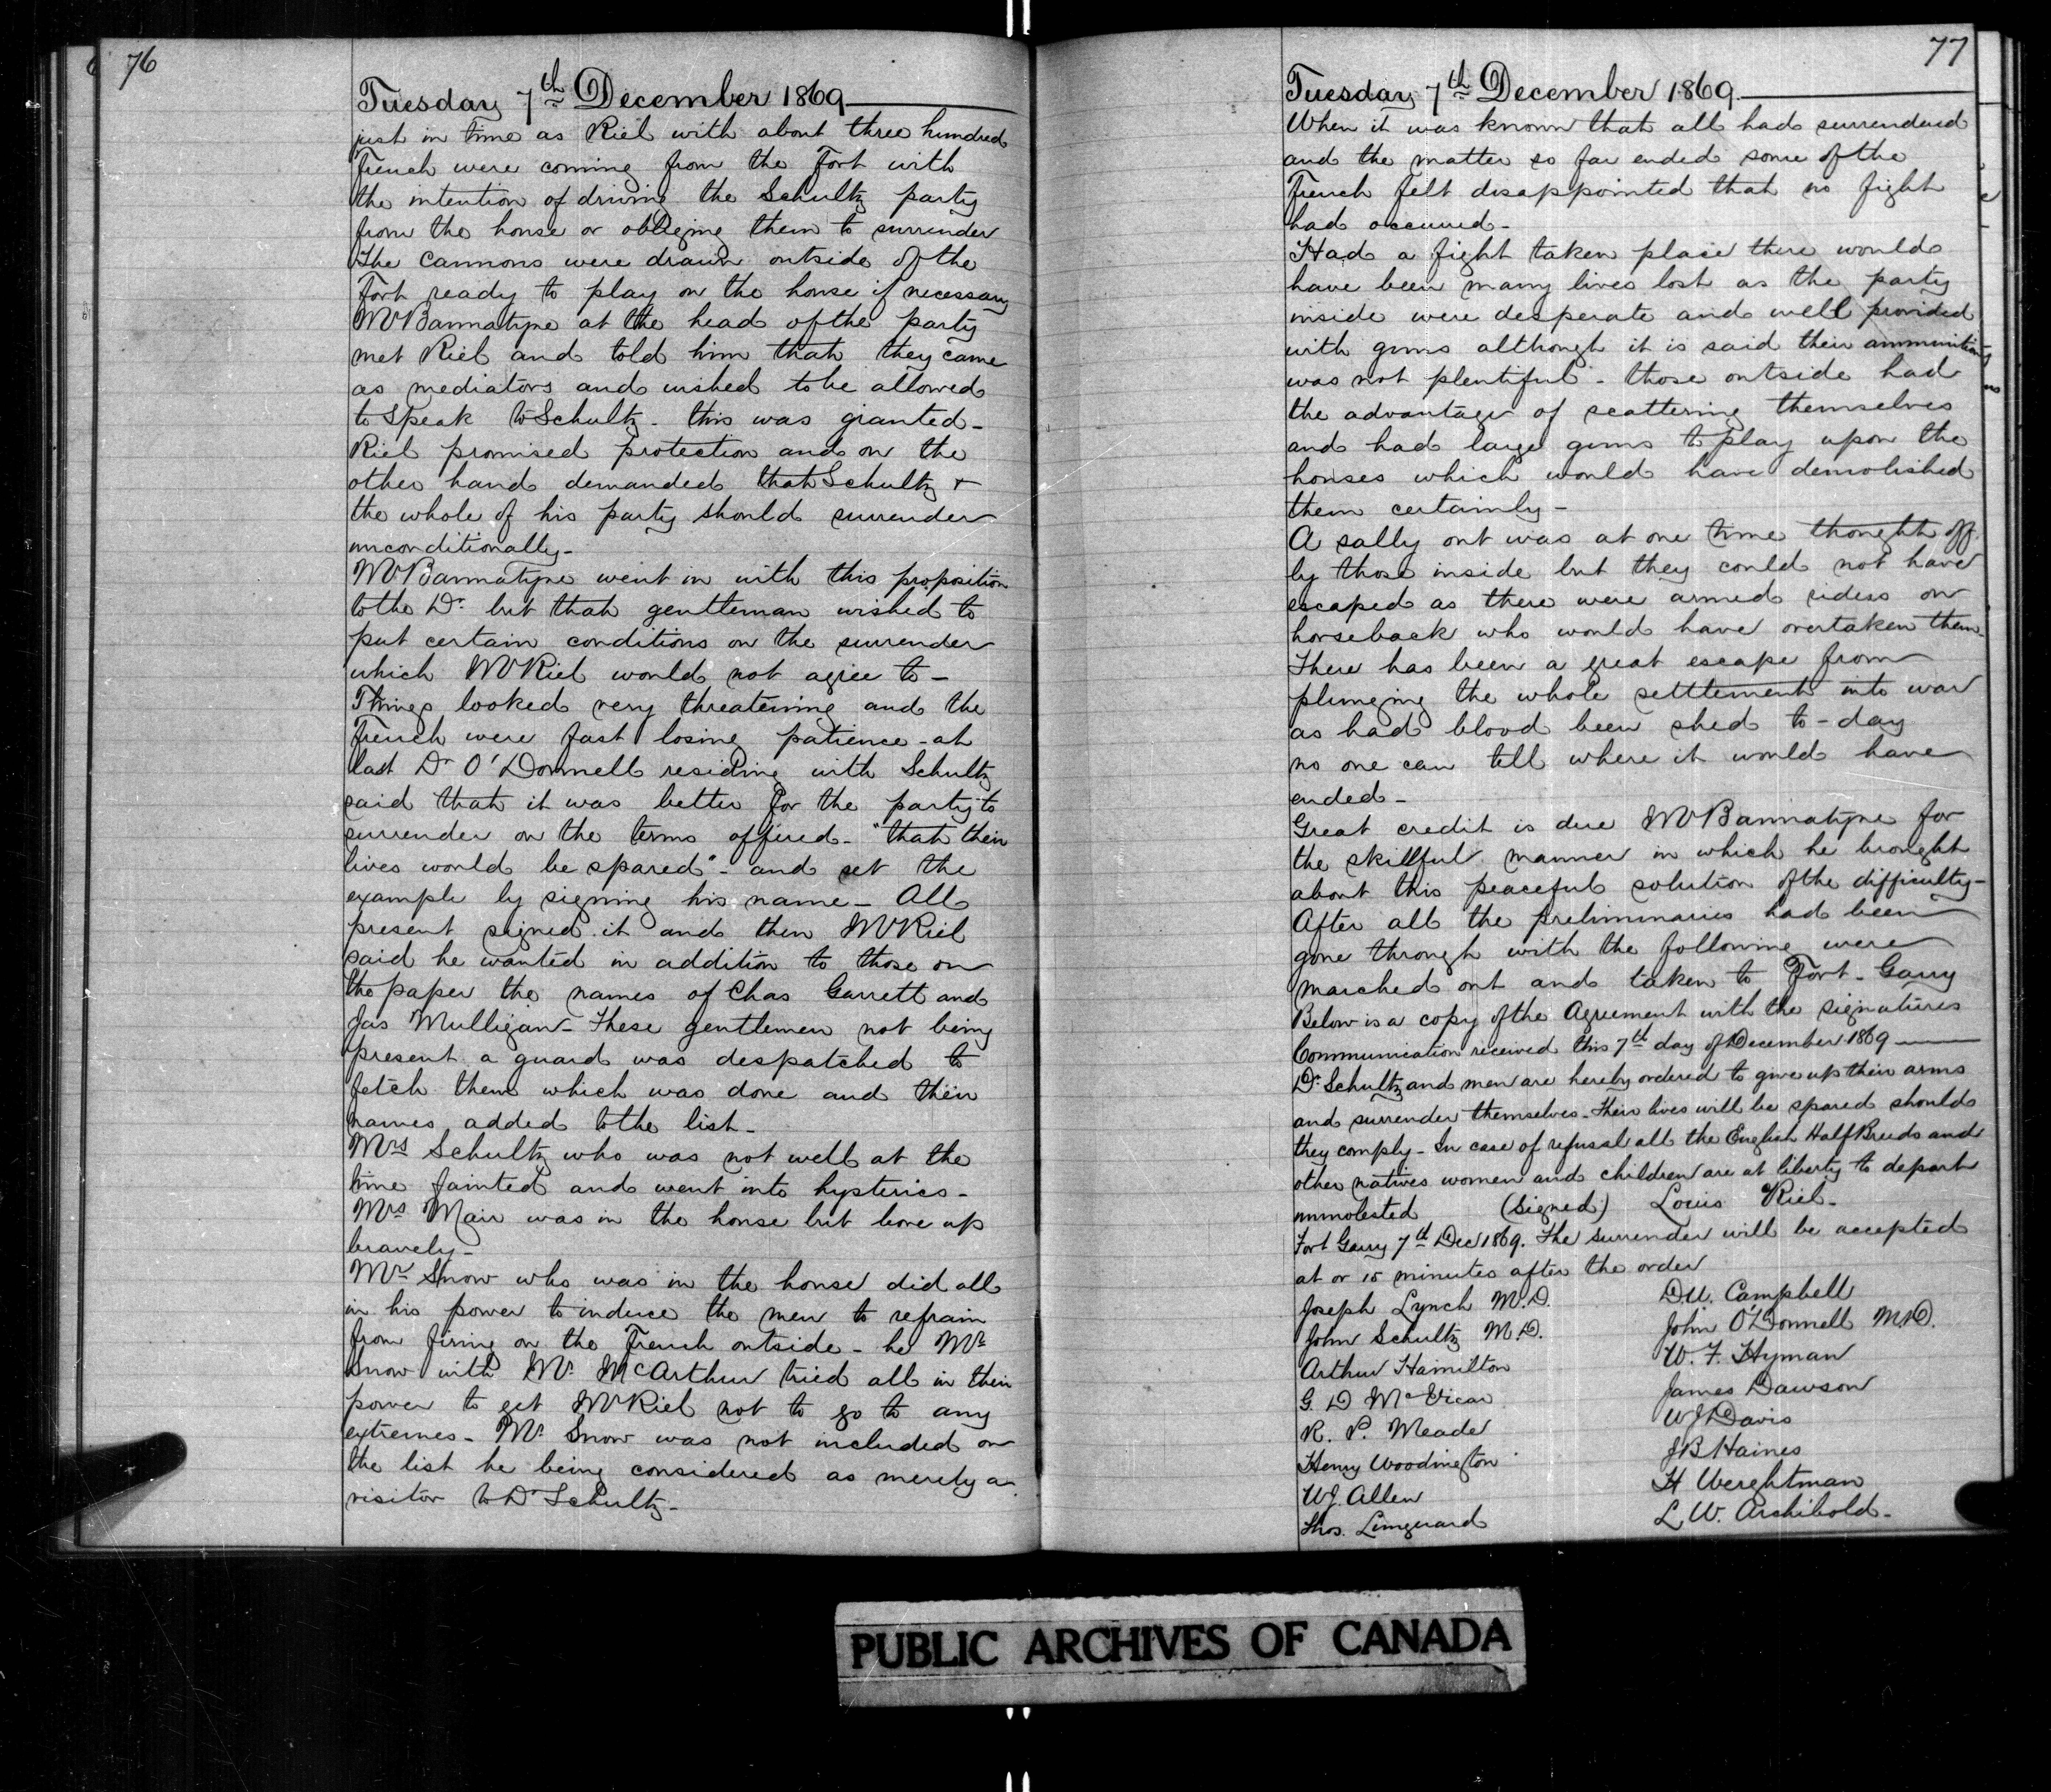 76
Tuesday 7th December 1869
just in time as Riel with about three hundred
French were coming from the Fort with
the intention of driving the Schultz party
from the house or obligeing them to surrender
The Cannons were drawn outside of the
Fort ready to play on the house if necessary
Mr Bannatyne at the head of the party
met Riel and told him that they came
as mediators and wished to be allowed
to speak to Schultz - this was granted -
Riel promised protection and on the
other hand demanded that Schultz +
the whole of his party should surrender
unconditionally -
Mr Bannatyne went in with this proposition
to the Dr. but that gentleman wished to
put certain conditions on the surrender
which Mr Riel would not agree to -
Things looked very threatening and the
French were fast losing patience - at
last Dr O'Donnell residing with Schultz
said that it was better for the party to
surrender on the terms offered - "that their
lives would be spared" - and set the
example by signing his name - All
present signed it and then Mr Riel
said he wanted in addition to those on
the paper the names of Chas Garrett and
Jas Mulligan - These gentlemen not being
present a guard was despatched to
fetch them which was done and their
names added to the list -
Mrs Schultz who was not well at the
time fainted and went into hysterics -
Mrs Mair was in the house but bore up
bravely -
Mr Snow who was in the house did all
in his power to induce the men to refrain
from firing on the French outside - he Mr
Snow with Mr. McArthur tried all in their
power to get Mr Riel not to go to any
extremes - Mr. Snow was not included on
the list he being considered as merely a
visitor to Dr Schultz -
77
Tuesday 7th December 1869
When it was known that all had surrendered
and the matter so far ended some of the
French felt disappointed that no fight
had occurred -
Had a fight taken place there would
have been many lives lost as the party
inside were desperate and well provided
with guns although it is said their ammunition
was not plentiful - those outside had
the advantage of scattering themselves
and had large guns to play upon the
houses which would have demolished
them certainly -
A sally out was at one time thought off
by those inside but they could not have
escaped as there were armed riders on
horseback who would have overtaken them -
There has been a great escape from
plunging the whole settlement into war
as had blood been shed to-day
no one can tell where it would have
ended -
Great credit is due Mr Bannatyne for
the skillful manner in which he brought
about this peaceful solution of the difficulty -
After all the preliminaries had been
gone through with the following were
marched out and taken to Fort - Garry
Below is a copy of the Agreement with the signatures
Communication received this 7th day of December 1869
Dr. Schultz and men are hereby ordered to give up their arms
and surrender themselves - Their lives will be spared should
they comply - In case of refusal all the English Half Breeds and
other natives women and children are at liberty to depart
unmolested (signed) Louis Riel -
Fort Garry 7th Dec 1869. The surrender will be accepted
at or 15 minutes after the order
Joseph Lynch M.D.
John Schultz M.D.
Arthur Hamilton
G. D McVicar
R. P. Meade
Henry Woodington
W.J. Allen
Thos. Linguard
D.U. Campbell
John O'Donnell M.D.
W. F. Hyman
James Dawson
WJ Davis
JB Haines
H Werghtman
L W. Archibold -
PUBLIC ARCHIVES OF CANADA